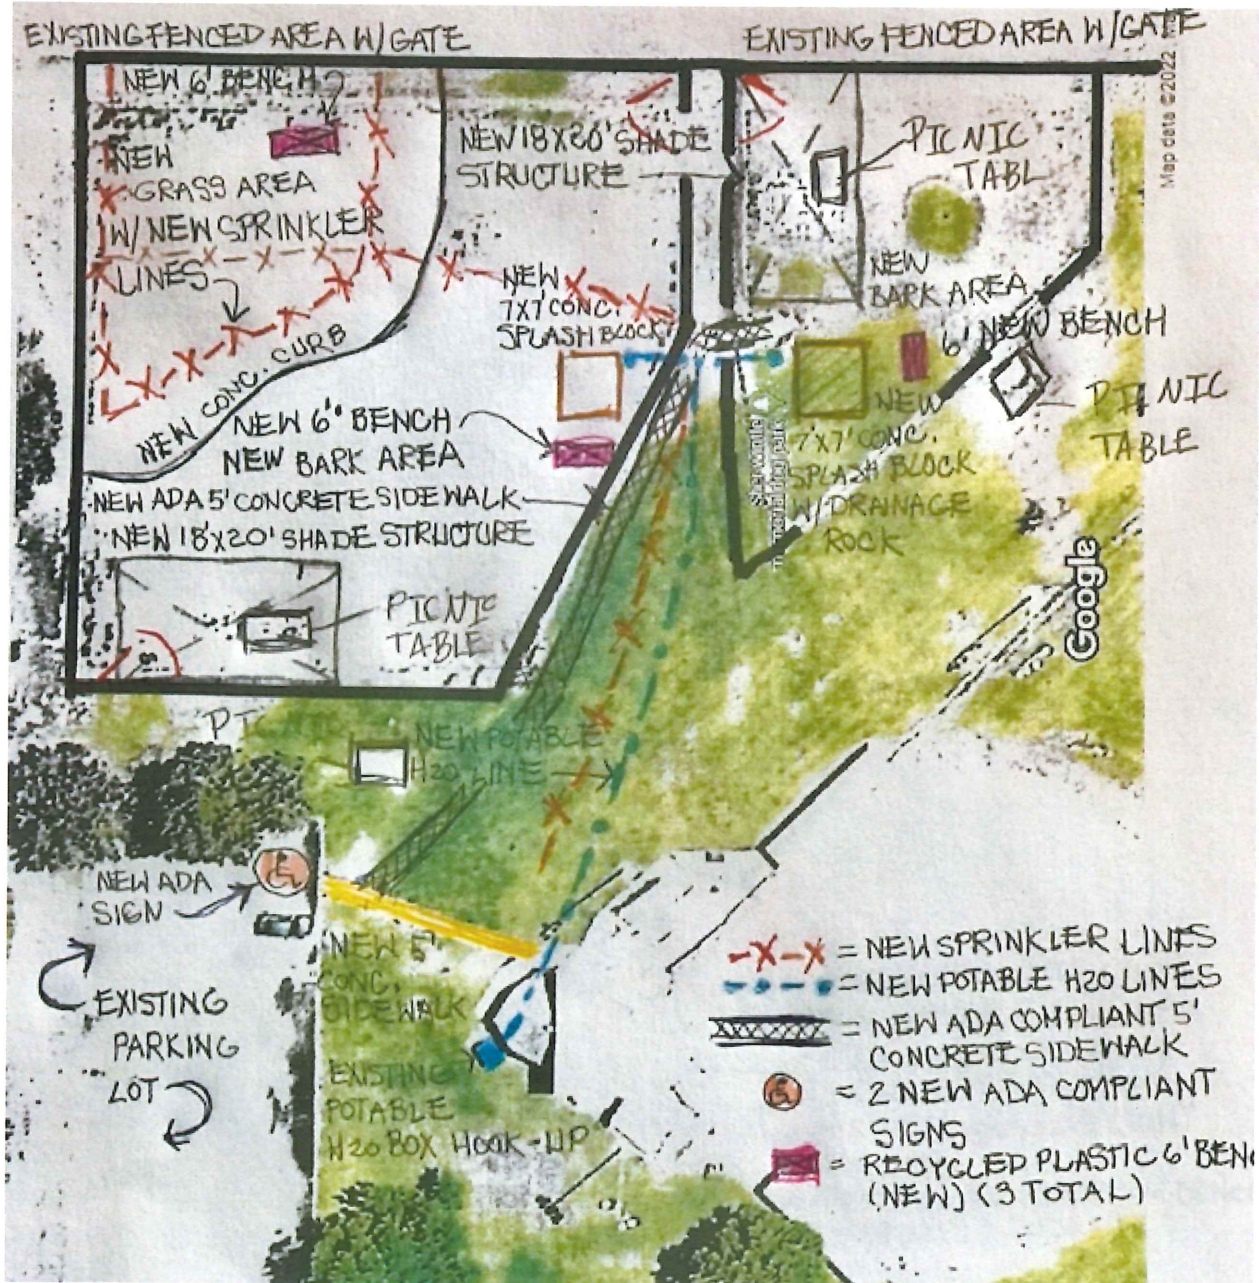 EXISTING FENCED AREA W/GATE
EXISTING FENCED AREA W/GATE
NEW 6' BENCH
NEW
GRASS AREA
W/ NEW SPRINKLER
LINES
NEW CONC. CURB
NEW 18'X20' SHADE
STRUCTURE
PICNIC
TABL
NEW
BARK AREA
6' NEW BENCH
PICNIC
TABLE
NEW
7'X7' CONC.
SPLASH BLOCK
NEW 6' BENCH
NEW BARK AREA
NEW ADA 5' CONCRETE SIDEWALK
NEW 18'X20' SHADE STRUCTURE
PICNIC
TABLE
NEW
7'X7' CONC.
SPLASH BLOCK
W/DRAINAGE
ROCK
Map data ©2022
Google
PI
NEW POTABLE
H20 LINE
NEW ADA
SIGN
NEW 5'
CONC.
SIDEWALK
EXISTING
PARKING
LOT
EXISTING
POTABLE
H20 BOX HOOK-UP
= NEW SPRINKLER LINES
= NEW POTABLE H20 LINES
= NEW ADA COMPLIANT 5'
CONCRETE SIDEWALK
= 2 NEW ADA COMPLIANT
SIGNS
= RECYCLED PLASTIC 6' BEN
(NEW) (3 TOTAL)